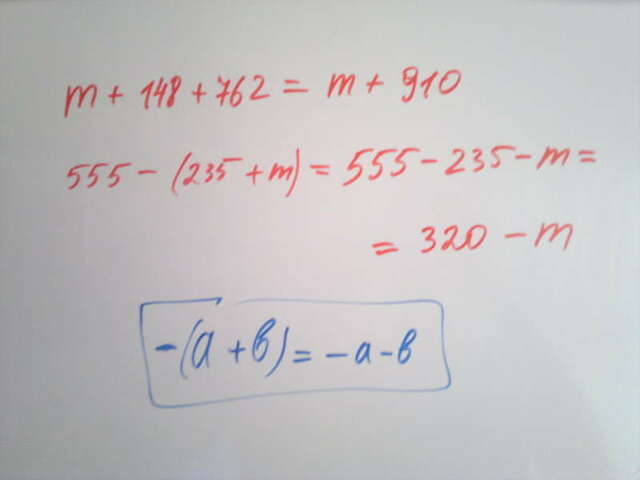 m + 148 + 762 = m + 910
555 - (235 + m) = 555 - 235 - m =
= 320 - m
-(a + b) = -a - b